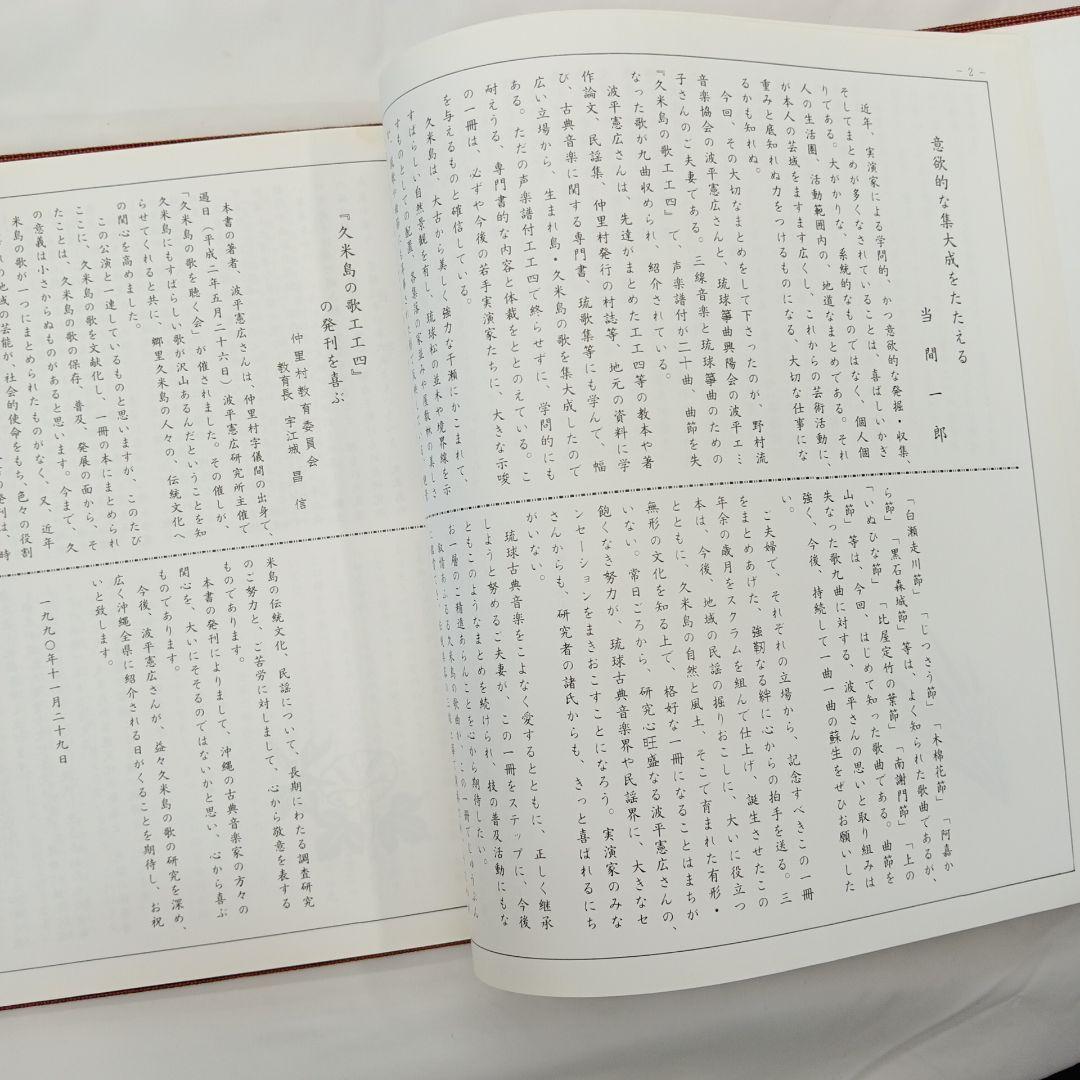 - 2 -
意欲的な集大成をたたえる
当間一郎
近年、実演家による学問的、かつ意欲的な発掘・収集、
そしてまとめが多くなされていることは、喜ばしいかぎ
りである。大がかりな、系統的なものではなく、個人個
人の生活圏、活動範囲内の、地道なまとめである。それ
が本人の芸域をますます広くし、これからの芸術活動に、
重みと底知れぬ力をつけるものになる、大切な仕事にな
るかも知れぬ。
今回、その大切なまとめをして下さったのが、野村流
音楽協会の波平憲広さんと、琉球箏曲興陽会の波平エ…
子さんのご夫妻である。三線音楽と琉球箏曲のための
『久米島の歌工工四』で、声楽譜付が二十曲、曲節を失
なった歌が九曲収められ、紹介されている。
波平憲広さんは、先達がまとめた工工四等の教本や著
作論文、民謡集、仲里村発行の村誌等、地元の資料に学
び、古典音楽に関する専門書、琉歌集等にも学んで、幅
広い立場から、生まれ島・久米島の歌を集大成したので
ある。ただの声楽譜付工工四で終らせずに、学問的にも
耐えうる、専門書的な内容と体裁をととのえている。こ
の一冊は、必ずや今後の若手実演家たちに、大きな示唆
を与えるものと確信している。
久米島は、大古から美しく強力な干瀬にかこまれて、
すばらしい自然景観を有し、琉球松の並木や境界線を示
すものとしての配置、各集落の家並みや屋敷林の美しさ
「白瀬走川節」「じっさう節」「木棉花節」「阿嘉か
ら節」「黒石森城節」等は、よく知られた歌曲であるが、
「いぬひな節」「比屋定竹の葉節」「南謝門節」「上の
山節」等は、今回、はじめて知った歌曲である。曲節を
失なった歌九曲に対する、波平さんの思いと取り組みは
強く、今後、持続して一曲一曲の蘇生をぜひお願いした
い。
ご夫婦で、それぞれの立場から、記念すべきこの一冊
をまとめあげた、強靭なる絆に心からの拍手を送る。三
年余の歳月をスクラムを組んで仕上げ、誕生させたこの
本は、今後、地域の民謡の掘りおこしに、大いに役立つ
とともに、久米島の自然と風土、そこで育まれた有形・
無形の文化を知る上で、格好な一冊になることはまちが
いない。常日ごろから、研究心旺盛なる波平憲広さんの、
飽くなき努力が、琉球古典音楽界や民謡界に、大きなセ
ンセーションをまきおこすことになろう。実演家のみな
さんからも、研究者の諸氏からも、きっと喜ばれるにち
がいない。
琉球古典音楽をこよなく愛するとともに、正しく継承
しようと努めるご夫妻が、この一冊をステップに、今後
ともこのようなまとめを続けられ、技の普及活動にもな
お一層のご精進あらんことを心から期待したい。
『久米島の歌工工四』
の発刊を喜ぶ
仲里村教育委員会
教育長 宇江城昌信
本書の著者、波平憲広さんは、仲里村字儀間の出身で、
過日(平成二年五月二十六日)波平憲広研究所主催で
「久米島の歌を聴く会」が催されました。その催しが、
久米島にもすばらしい歌が沢山あるんだということを知
らせてくれると共に、郷里久米島の人々の、伝統文化へ
の関心を高めました。
この公演と一連しているものと思いますが、このたび
ここに、久米島の歌を文献化し、一冊の本にまとめられ
たことは、久米島の歌の保存、普及、発展の面から、そ
の意義は小さからぬものがあると思います。今まで、久
米島の歌が一つにまとめられたものがなく、又、近年
の地域の芸能が、社会的使命をもち、色々の役割
米島の伝統文化、民謡について、長期にわたる調査研究
のご努力と、ご苦労に対しまして、心から敬意を表する
ものであります。
本書の発刊によりまして、沖縄の古典音楽家の方々の
関心を、大いにそそるのではないかと思い、心から喜ぶ
ものであります。
今後、波平憲広さんが、益々久米島の歌の研究を深め、
広く沖縄全県に紹介される日がくることを期待し、お祝
いと致します。
一九九〇年十一月二十九日